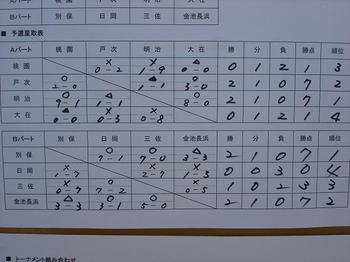 ■ 予選星取表
Aパート 桃園 戸次 明治 大在 勝 分 負 勝点 順位
× × △
桃園 0-2 1-9 0-0 0 1 2 1 3
○ ▲ ○
戸次 2-0 1-1 3-0 2 1 0 7 2
○ ▲ ○
明治 9-1 1-1 8-0 2 1 0 7 1
△ × ×
大在 0-0 0-3 0-8 0 1 2 1 4
Bパート 別保 日岡 三佐 金池長浜 勝 分 負 勝点 順位
○ ○ △
別保 7-1 7-0 3-3 2 1 0 7 1
× × ×
日岡 1-7 2-7 1-3 0 0 3 0 4
× ○ ×
三佐 0-7 7-2 0-5 1 0 2 3 3
△ ○ ○
金池長浜 3-3 3-1 5-0 2 1 0 7 2
■ トーナメント組み合わせ